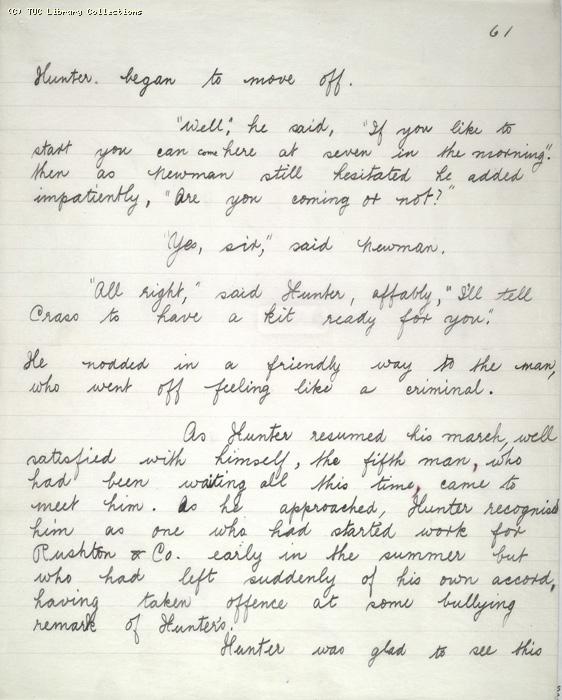 (C) TUC Library Collections
61
Hunter. began to move off.
"Well", he said, "If you like to
start you can come here at seven in the morning".
then as Newman still hesitated he added
impatiently, "Are you coming or not?"
"Yes, sir," said Newman.
"All right," said Hunter, affably, "I'll tell
Crass to have a kit ready for you".
He nodded in a friendly way to the man,
who went off feeling like a criminal.
As Hunter resumed his march, well
satisfied with himself, the fifth man, who
had been waiting all this time, came to
meet him. As he approached, Hunter recognised
him as one who had started work for
Rushton & Co. early in the summer but
who had left suddenly of his own accord,
having taken offence at some bullying
remark of Hunter's.
Hunter was glad to see this